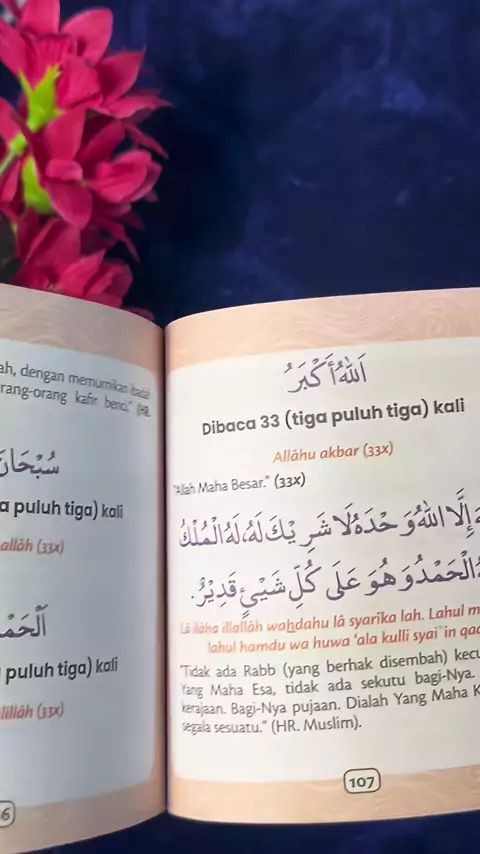 ah, dengan memurnikan ibadah
rang-orang kafir benci." (HR.
سُبْحَانَ
a puluh tiga) kali
allâh (33x)
اَلْحَمْ
puluh tiga) kali
lillâh (33x)
6
اَللّٰهُ أَكْبَرُ
Dibaca 33 (tiga puluh tiga) kali
Allâhu akbar (33x)
"Allah Maha Besar." (33x)
إِلَّا اللّٰهُ وَحْدَهُ لَا شَرِيْكَ لَهُ، لَهُ الْمُلْكُ
الْحَمْدُ وَهُوَ عَلَى كُلِّ شَيْئٍ قَدِيْرٌ.
Lâ ilâha illallâh wahdahu lâ syarîka lah. Lahul m
lahul hamdu wa huwa 'ala kulli syai`in qad
"Tidak ada Rabb (yang berhak disembah) kecu
Yang Maha Esa, tidak ada sekutu bagi-Nya.
kerajaan. Bagi-Nya pujaan. Dialah Yang Maha K
segala sesuatu." (HR. Muslim).
107